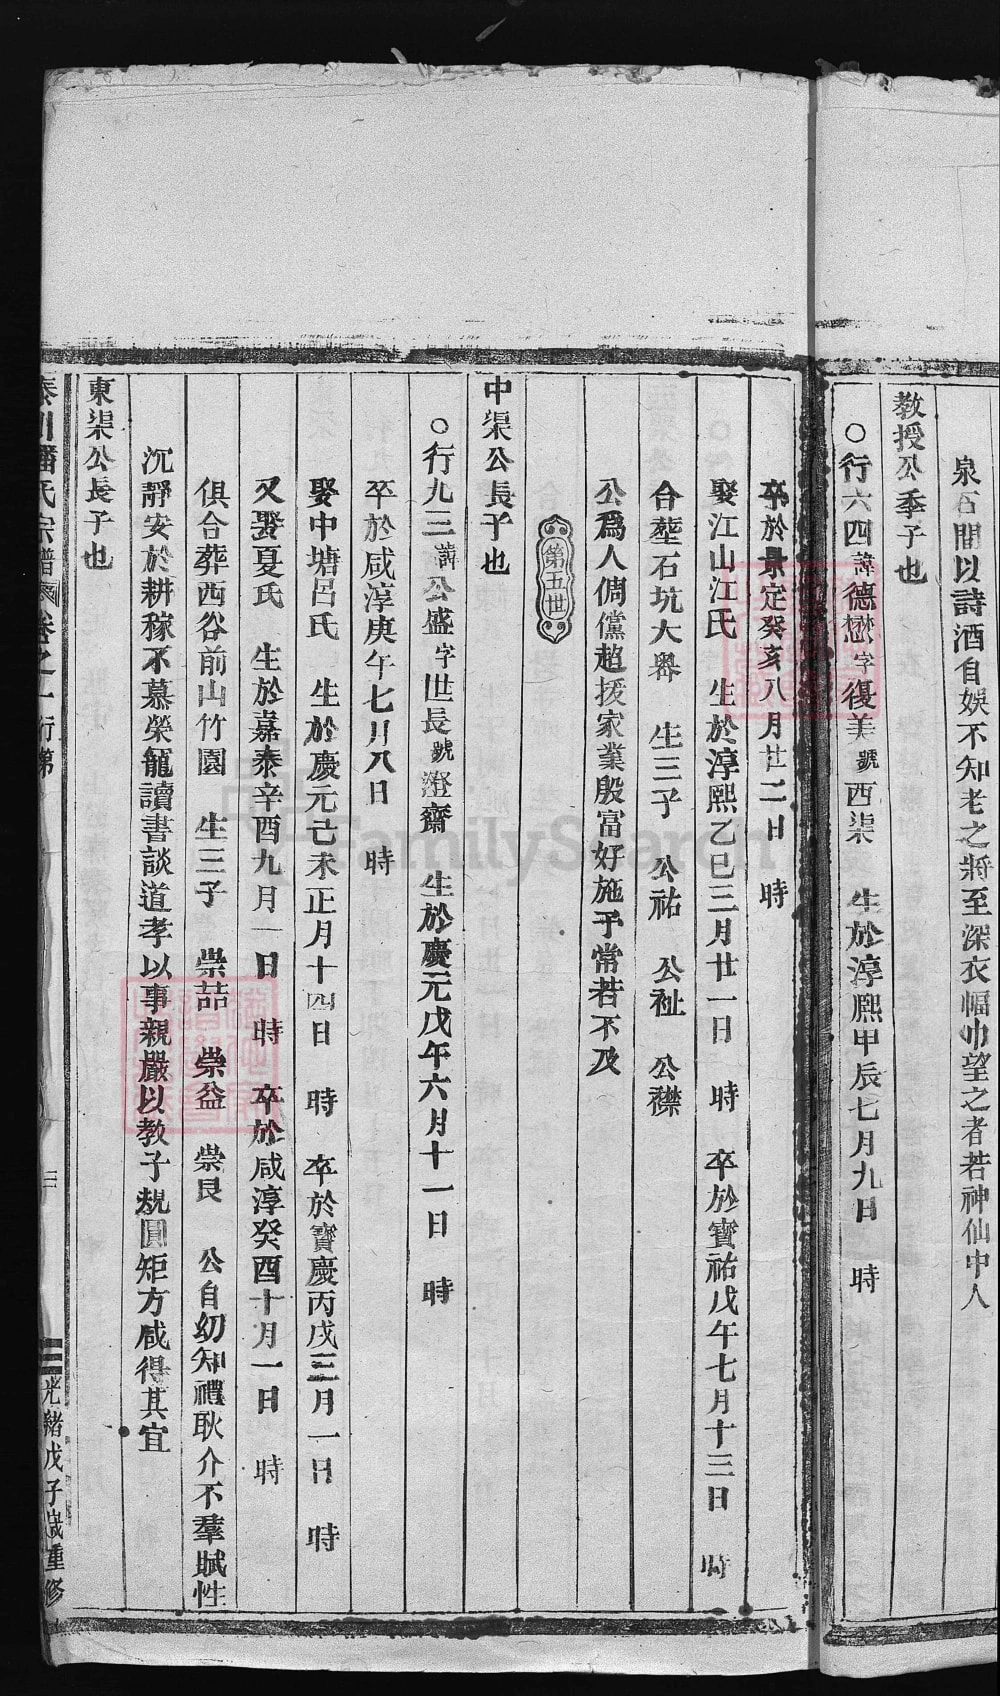 泉石間以詩酒自娛不知老之將至深衣幅巾望之者若神仙中人
教授公季子也
○行六四諱德懋字復美號西渠 生於淳熙甲辰七月九日 時
卒於景定癸亥八月廿二日 時
娶江山江氏 生於淳熙乙巳三月廿一日 時 卒於寶祐戊午七月十三日 時
合塟石坑大嶴 生三子 公祐 公祉 公襟
公爲人倜儻超㧞家業殷富好施予常若不及
第五世
中渠公長子也
○行九三諱公盛字世長號澄齋 生於慶元戊午六月十一日 時
卒於咸淳庚午七月八日 時
娶中塘呂氏 生於慶元己未正月十四日 時 卒於寶慶丙戌三月一日 時
又娶夏氏 生於嘉泰辛酉九月一日 時 卒於咸淳癸酉十月一日 時
俱合葬西谷前山竹園 生三子 崇喆 崇益 崇艮 公自幼知禮耿介不羣賦性
沉靜安於耕稼不慕榮寵讀書談道孝以事親嚴以教子規圓矩方咸得其宜
東渠公長子也
氏宗譜 卷之一行第 三 光緒戊子歲重修
FamilySearch